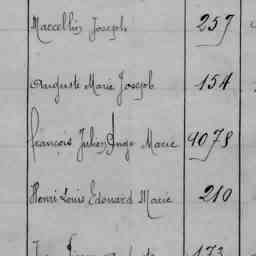 Marcellin Joseph 257
Auguste Marie Joseph 154
François Julien Ange Marie 1078
Henri Louis Edouard Marie 210
173